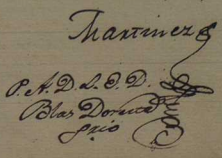 Martinez
P. A. D. S. E. D.
Blas Dorena
Srio